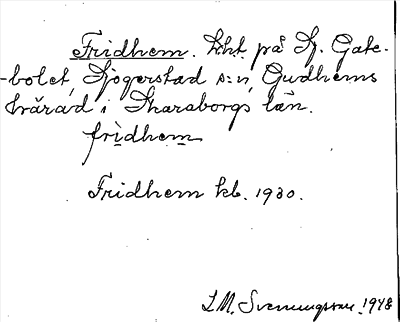 Fridhem. Lht. på Sj. Gate-
-bolet, Sjogerstad s:n, Gudhems
härad i Skaraborgs län.
fridhem
Fridhem kb. 1930.
I.M. Svenungsson. 1948